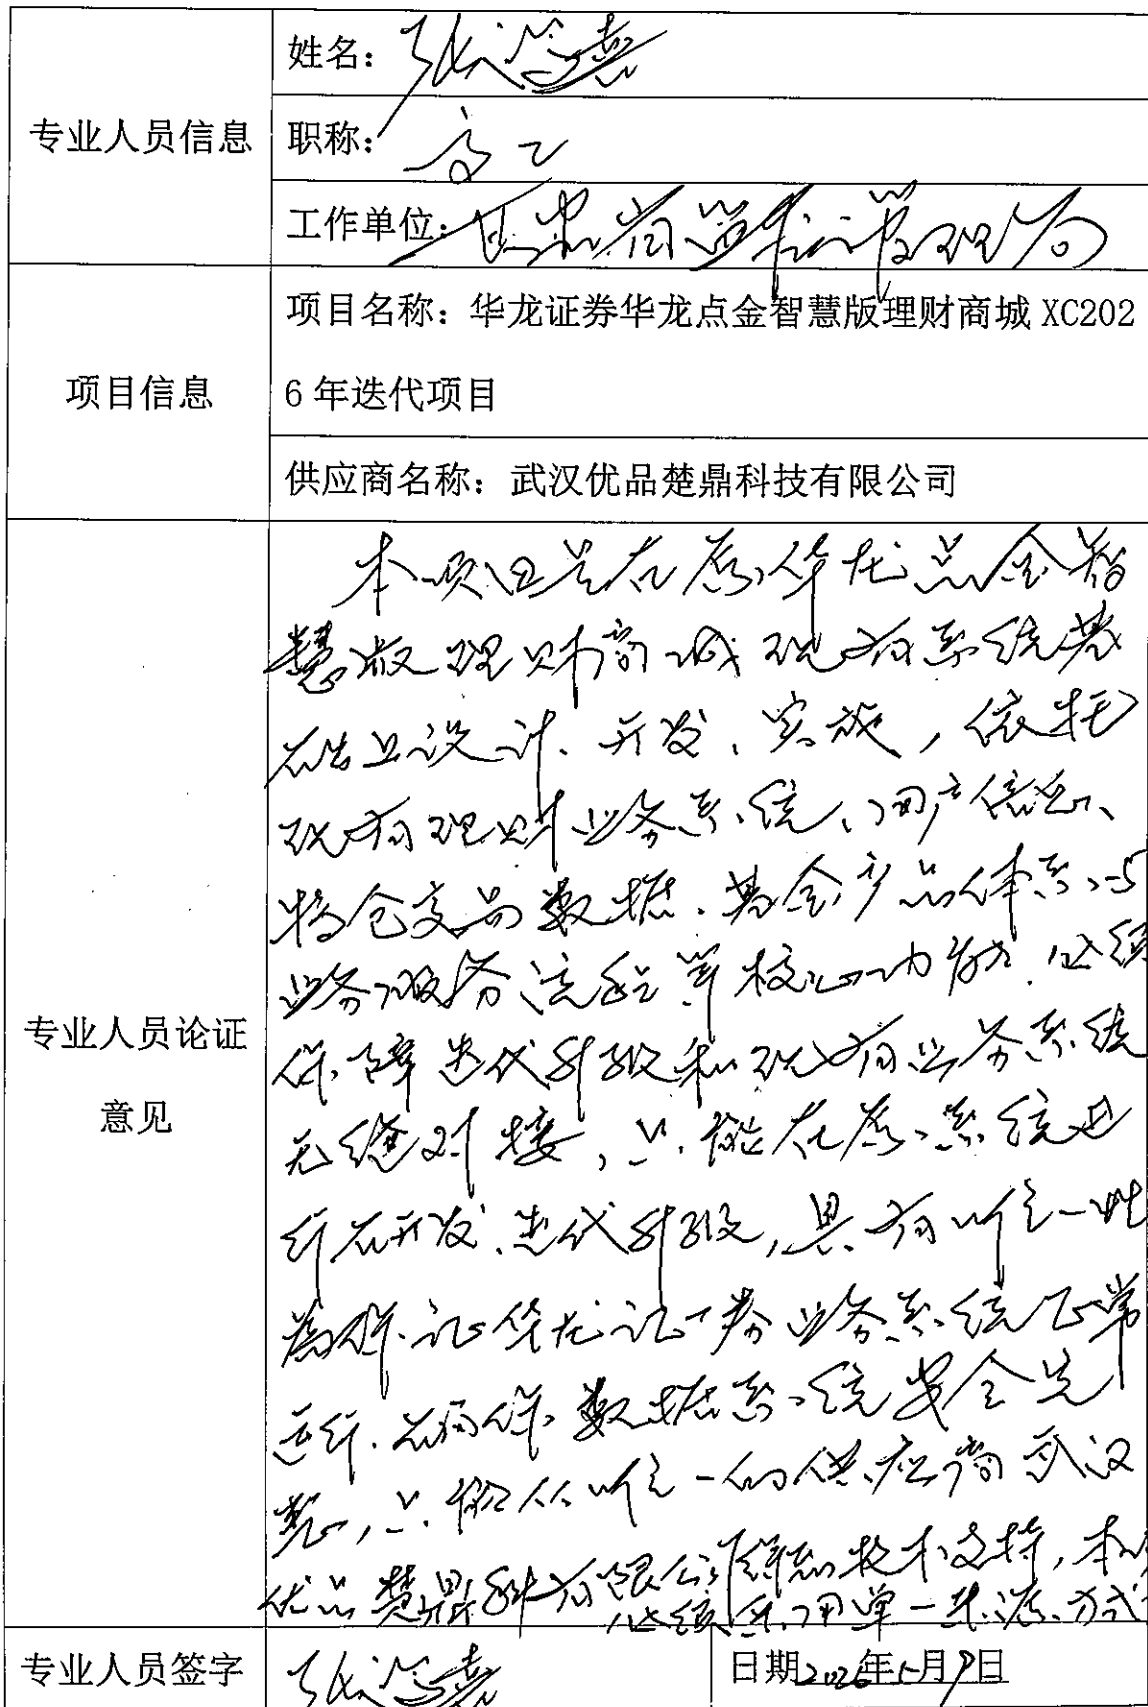 专业人员信息
姓名：张
职称：高工
工作单位：甘肃省 管理局
项目信息
项目名称：华龙证券华龙点金智慧版理财商城 XC202
6 年迭代项目
供应商名称：武汉优品楚鼎科技有限公司
专业人员论证
意见
本项目是在原华龙点金智
慧版理财商城现有系统基
础上设计、开发、实施，依托
现有理财业务系统、用户信息、
持仓交易数据、基金产品体系与
业务服务流程等核心功能，必须
保障迭代升级和现有业务系统
无缝对接，只能在原系统进
行开发、迭代升级，具有唯一性
为保证华龙证券业务系统正常
运行、确保数据系统安全完
整，只能从唯一的供应商武汉
优品楚鼎科 有限公司 技术支持，本
必须采用单一来源方式
专业人员签字
张
日期2026年5月9日